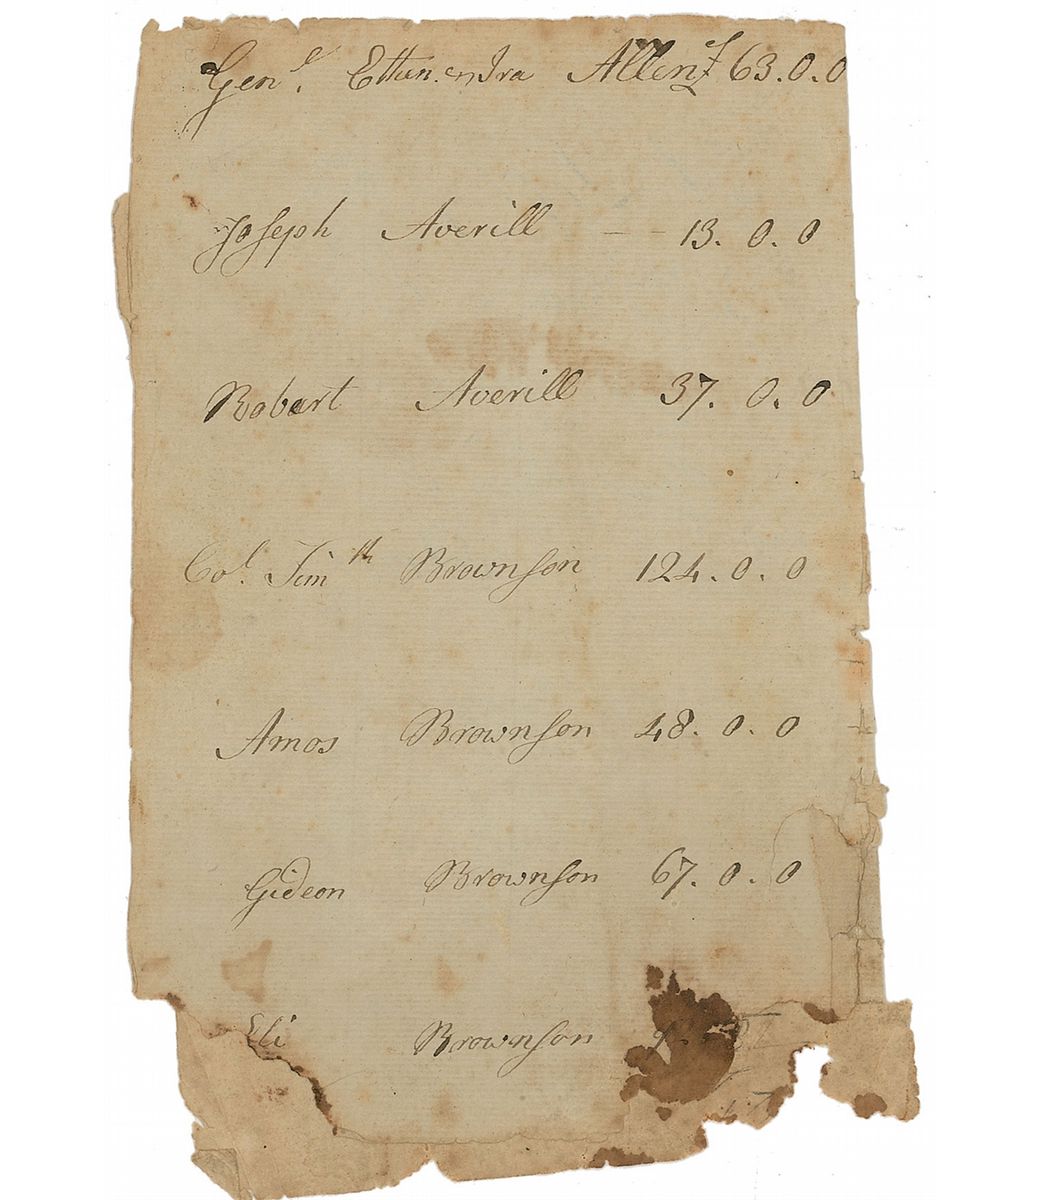 Genl. Ethan & Ira Allen £ 63.0.0
Joseph Averill — — 13. 0. 0
Robart Averill 37. 0. 0
Col. Timth Brownson 124. 0. 0
Amos Brownson 48. 0. 0
Gideon Brownson 67. 0. 0
Eli Brownson